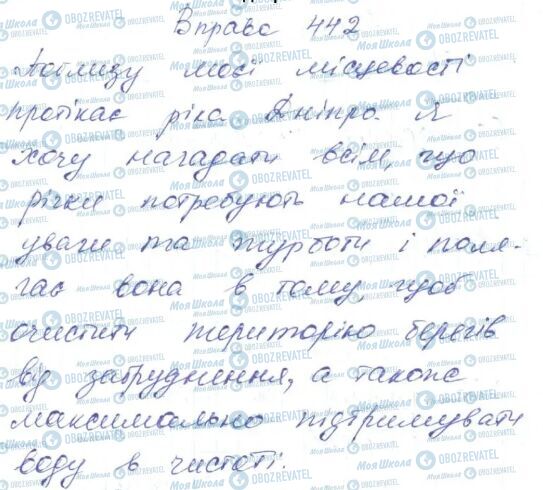 Вправа 442
Поблизу моєї місцевості
протікає ріка Дніпро. Я
хочу нагадати всім, що
річки потребують нашої
уваги та турботи і поля-
гає вона в тому, щоб
очистити територію берегів
від забруднення, а також
максимально підтримувати
воду в чистоті.